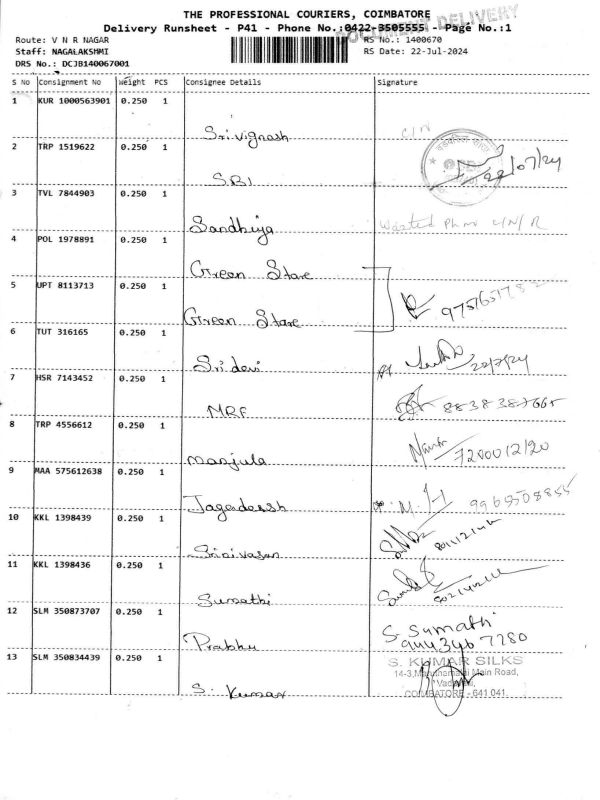 THE PROFESSIONAL COURIERS, COIMBATORE
DOCUMENT DELIVERY
Delivery Runsheet - P41 - Phone No.:0422-3505555 - Page No.:1
Route: V N R NAGAR
RS No.: 1400670
Staff: NAGALAKSHMI
RS Date: 22-Jul-2024
DRS No.: DCJB140067001
S No Consignment No Weight PCS Consignee Details Signature
1 KUR 1000563901 0.250 1
Srivignash
2 TRP 1519622 0.250 1
22/07/24
SBI
3 TVL 7844903 0.250 1
Sandhiya
4 POL 1978891 0.250 1
Green Stare
5 UPT 8113713 0.250 1
Green Stare
6 TUT 316165 0.250 1
Sridevi 22/7/24
7 HSR 7143452 0.250 1
MRF
8 TRP 4556612 0.250 1
manjula
9 MAA 575612638 0.250 1
Jagadeesh
10 KKL 1398439 0.250 1
Srinivasan
11 KKL 1398436 0.250 1
Sumathi
12 SLM 350873707 0.250 1
S. Sumathi
Prabhu 944 346 7280
13 SLM 350834439 0.250 1
S. KUMAR SILKS
14-3, Main Road,
S. Kumar
COIMBATORE - 641 041.